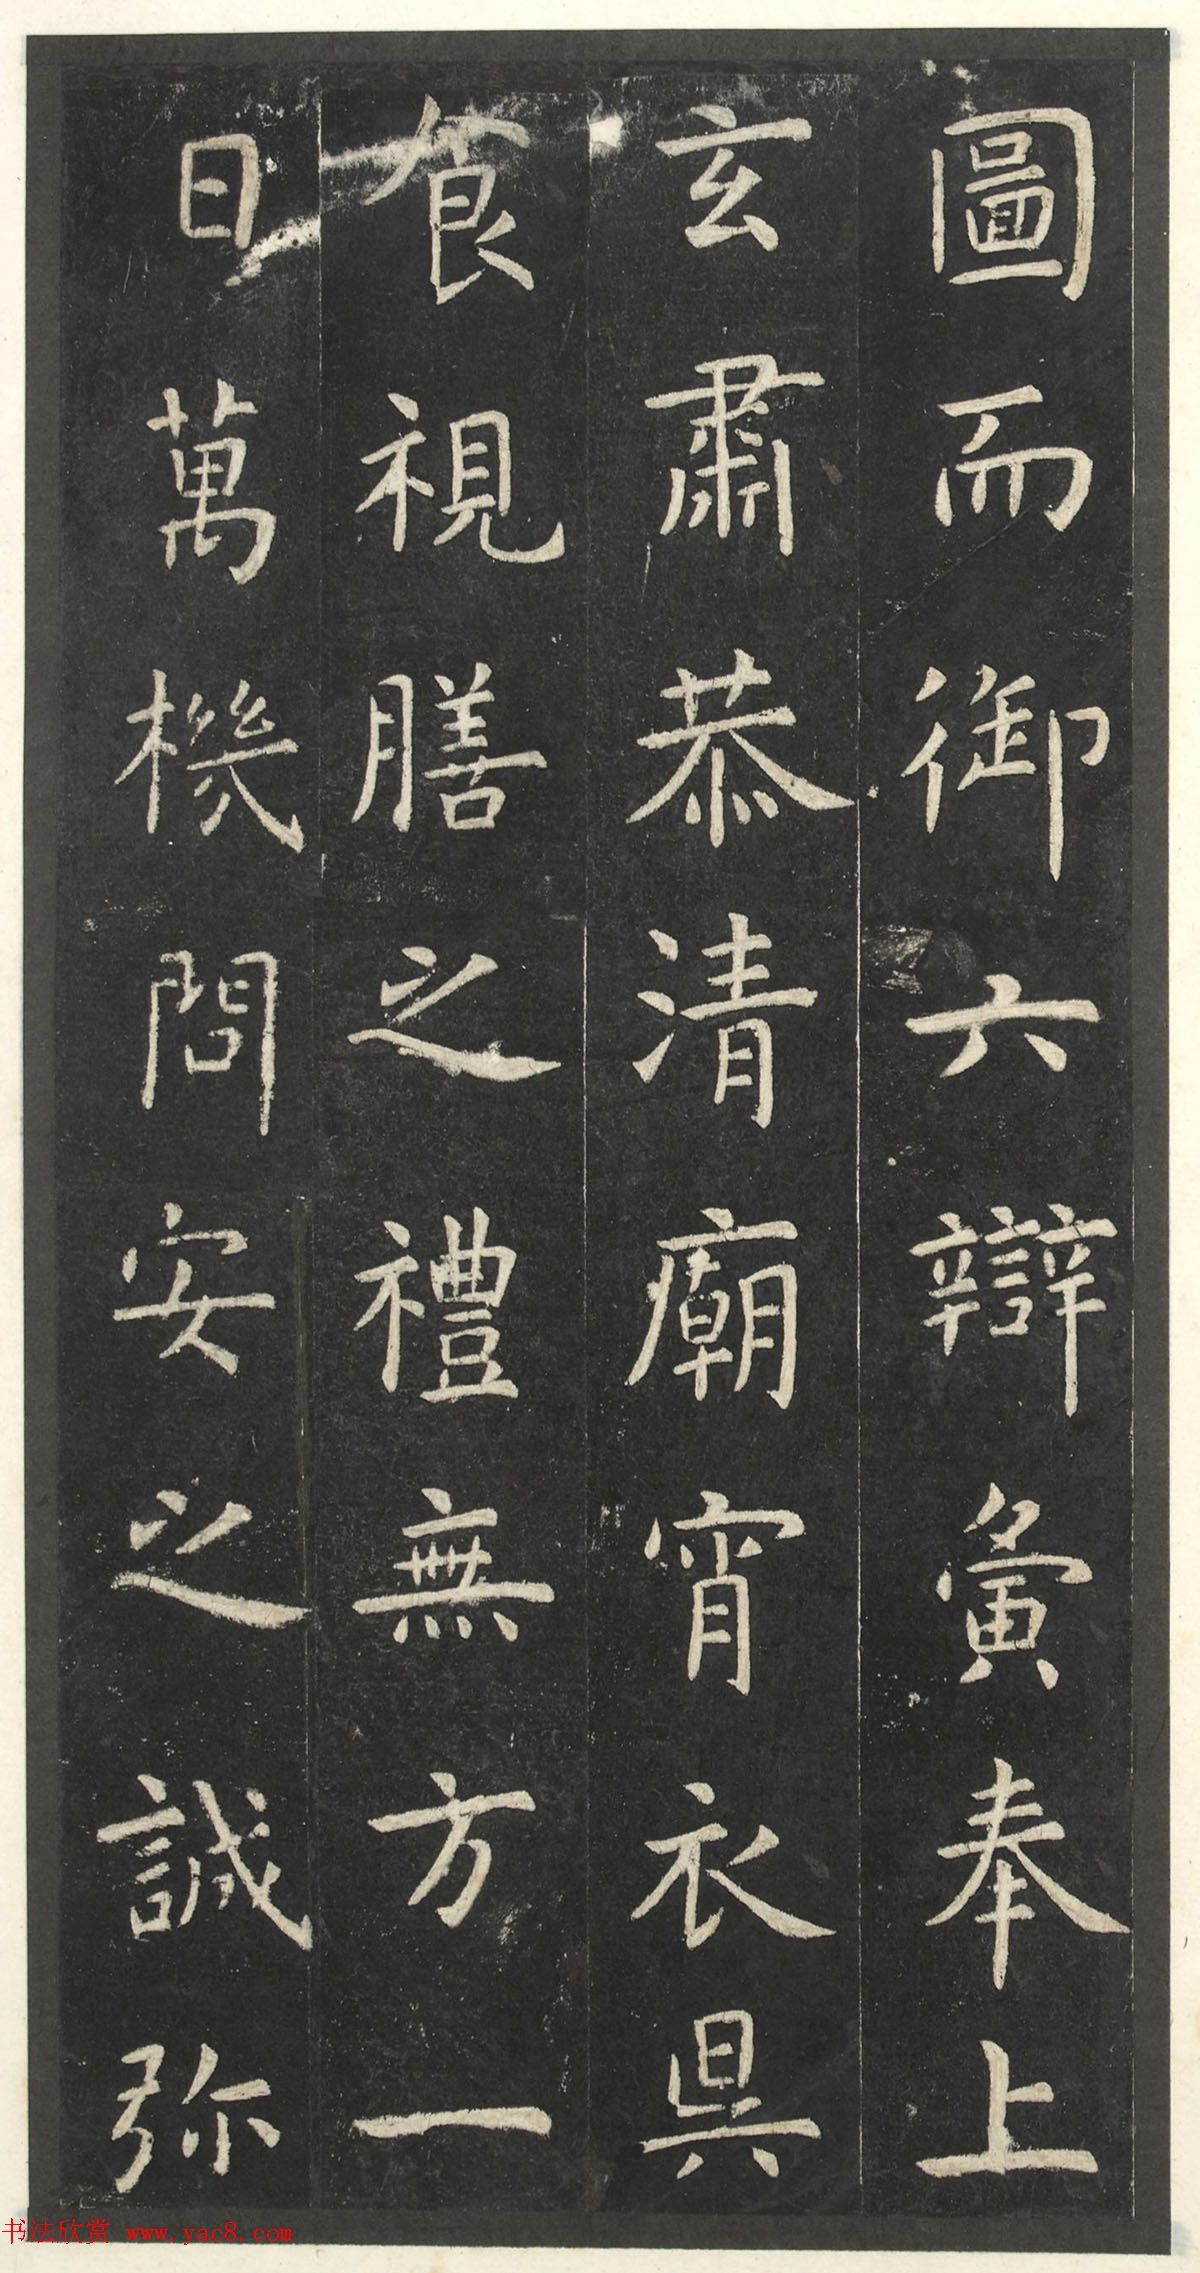 圖而御六辯寅奉上
玄肅恭清廟宵衣昃
食視膳之禮無方一
日萬機問安之誠弥
书法欣赏 www.yac8.com